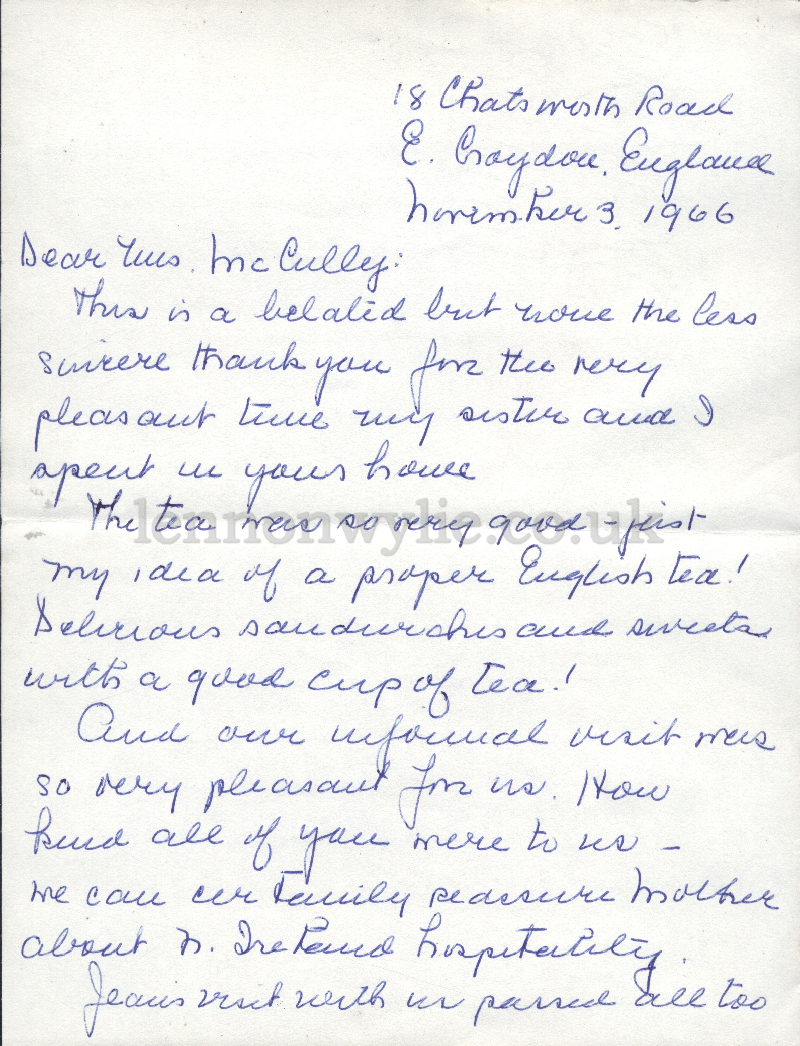 18 Chatsworth Road
E. Croydon, England
November 3, 1966
Dear Mrs. McCully:
This is a belated but none the less
sincere thank you for the very
pleasant time my sister and I
spent in your home
The tea was so very good - just
lennonwylie.co.uk
my idea of a proper English tea!
Delicious sandwiches and sweets
with a good cup of tea!
And our informal visit was
so very pleasant for us. How
kind all of you were to us -
we can certainly reassure Mother
about N. Ireland hospitality.
Jean's visit with us passed all too